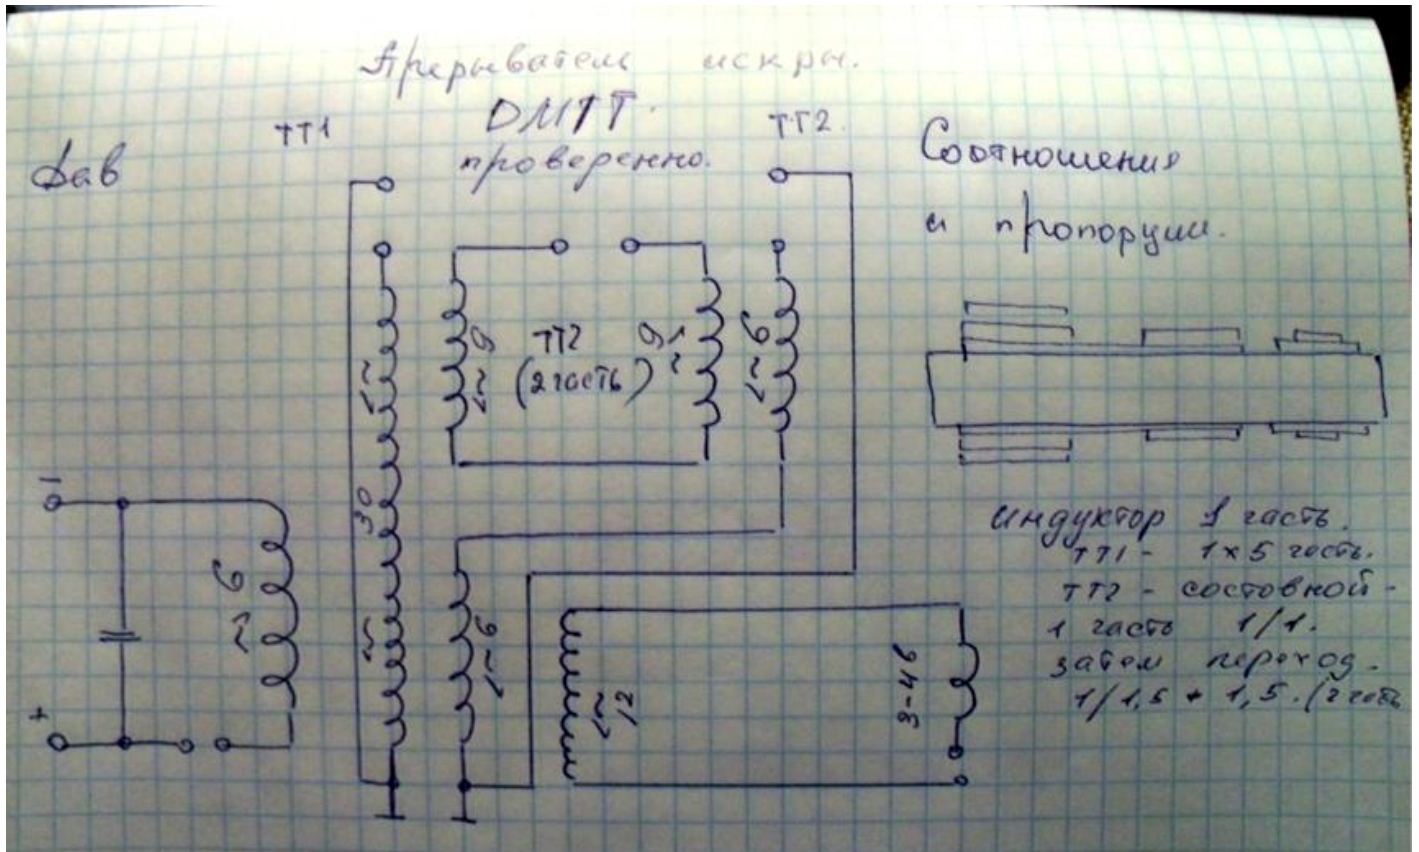 Прерыватель искры.
DMTT.
проверенно.
ТТ1
ТТ2.
Дав
Соотношения
и пропорции.
ТТ2
(2 часть)
~ 9
9 ~
~ 6
30
~ 6
~ 6
~ 12
3-4 в
-
+
индуктор 1 часть.
ТТ1 - 1 х 5 часть.
ТТ2 - состовной -
1 часть 1/1.
затем переход -
1/1,5 + 1,5. (2 часть